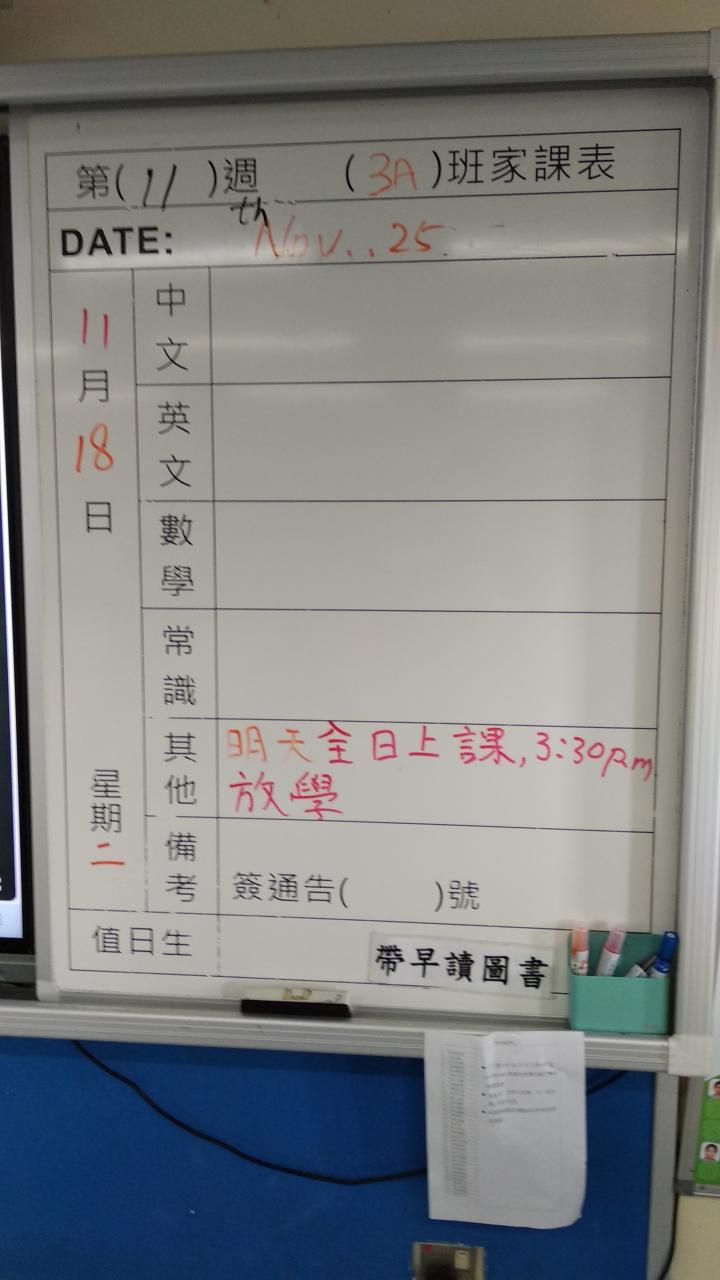 第( 11 )週 ( 3A )班家課表
th
DATE: Nov.. 25
11月18日
星期二
中文
英文
數學
常識
其他 明天全日上課, 3:30p.m.
放學
備考 簽通告( )號
值日生 帶早讀圖書